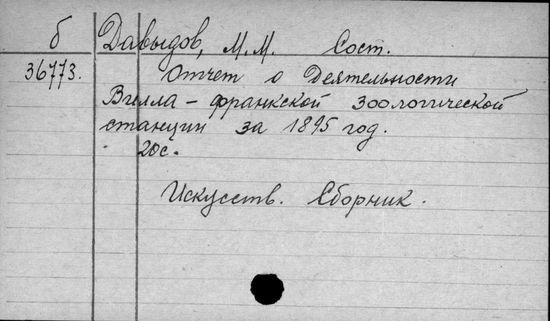 б Давыдов, М.М. Сост.
36773. Отчет о Деятельности
Вилла-франкской зоологической
станции за 1895 год.
20с.
Искусств. Сборник.